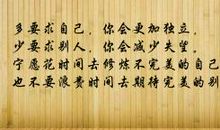 多要求自己，你会更加独立，
少要求别人，你会减少失望，
宁愿花时间去修炼不完美的自己
也不要浪费时间去期待完美的别